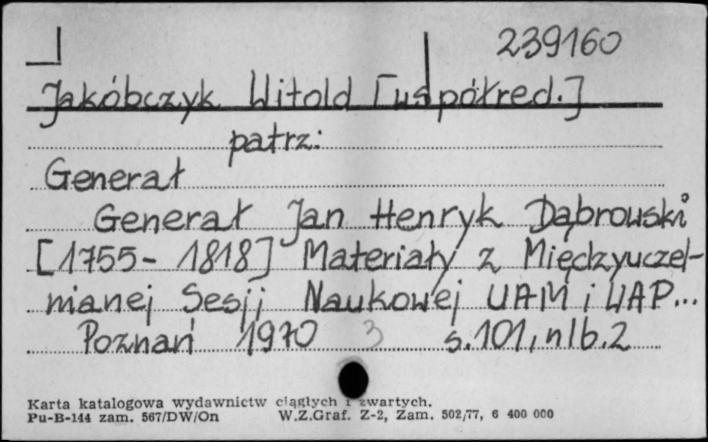 239160
Jakóbczyk Witold [współred.]
patrz:
Generał
Generał Jan Henryk Dąbrowski
[1755- 1818] Materiały z Międzyuczel-
nianej Sesji Naukowej UAM i WAP...
Poznań 1970 3 s.101, nlb.2
Karta katalogowa wydawnictw ciągłych i zwartych.
Pu-B-144 zam. 567/DW/On W.Z.Graf. Z-2, Zam. 502/77, 6 400 000